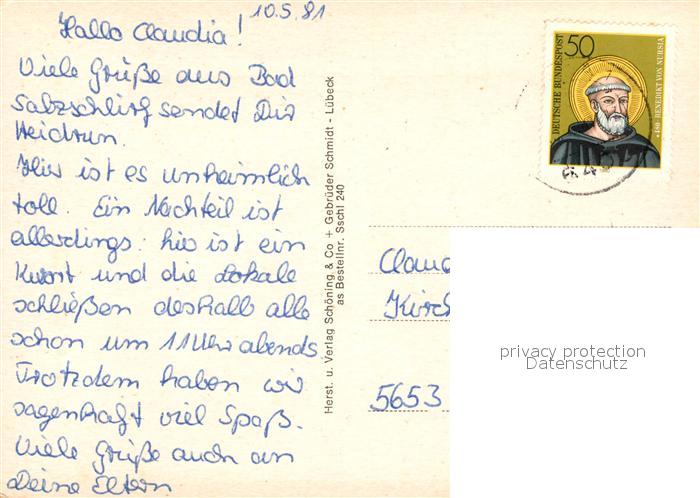 10.5.81
Hallo Claudia!
Viele Grüße aus Bad
Salzschlirf sendet Dir
Heidrun.
Hier ist es unheimlich
toll. Ein Nachteil ist
allerdings: hier ist ein
Kurort und die Lokale
schließen deshalb alle
schon um 11 Uhr abends.
Trotzdem haben wir
sagenhaft viel Spaß.
Viele Grüße auch an
Deine Eltern
Herst. u. Verlag Schöning & Co + Gebrüder Schmidt - Lübeck
as Bestellnr. Sschl 240
DEUTSCHE BUNDESPOST
50
* 480 BENEDIKT VON NURSIA
Claud
Kirch
5653
privacy protection
Datenschutz